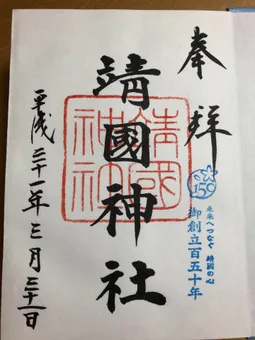 奉拝
150
未来へつなぐ 靖國の心
御創立百五十年
靖國神社
靖國
神社
平成三十一年三月三十一日